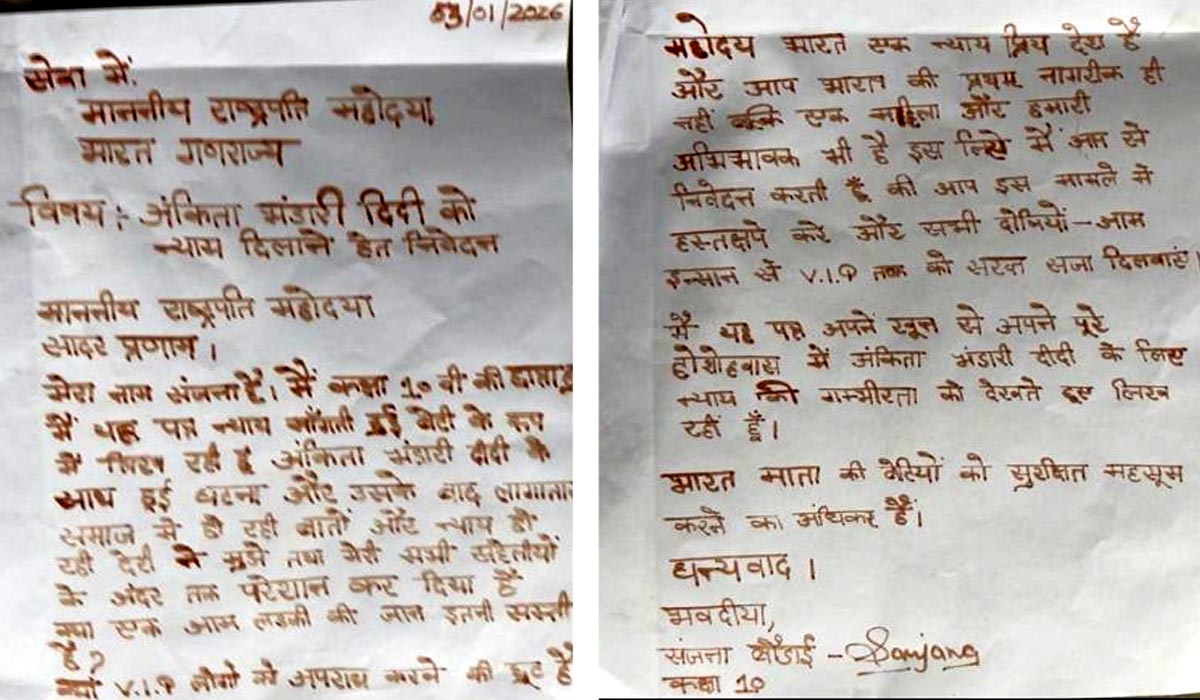 03/01/2026
सेवा में:
माननीय राष्ट्रपति महोदया,
भारत गणराज्य
विषय: अंकिता भंडारी दिदी को
न्याय दिलाने हेत निवेदन
माननीय राष्ट्रपति महोदया
सादर प्रणाम।
मेरा नाम संजना है। मैं कक्षा 10 वी की छात्रा हूँ
मैं यह पत्र न्याय माँगती हुई बेटी के रूप
में लिख रही हूँ अंकिता भंडारी दीदी के
साथ हुई घटना और उसके बाद लागातार
समाज में हो रही बातों और न्याय हो
रही देरी ने मुझे तथा मेरी सभी सहेतीयों
के अंदर तक परेशान कर दिया है
क्या एक आम लड़की की जान इतनी सस्ती
है?
क्यां V.I.P लोगो में अपराध करने की छूट है
महोदय भारत एक न्याय प्रिय देश है
और आप भारत की प्रथम नागरीक ही
नहीं बल्कि एक महिला और हमारी
अभिभावक भी है इस लिये मैं आप से
निवेदन करती हूँ की आप इस मामले में
हस्तक्षपे करे और सभी दोषियों - आम
इन्सान से V.I.P तक को सख्त सजा दिलवाएं।
मैं यह पत्र अपने खून से अपने पूरे
होशोहवास में अंकिता भंडारी दीदी के लिए
न्याय की गम्भीरता को देखते हुए लिख
रहीं हूँ।
भारत माता की बेटियों को सुरक्षित महसूस
करने का अधिकर है।
धन्यवाद।
भवदीया,
संजना - Sanjana
कक्षा 10